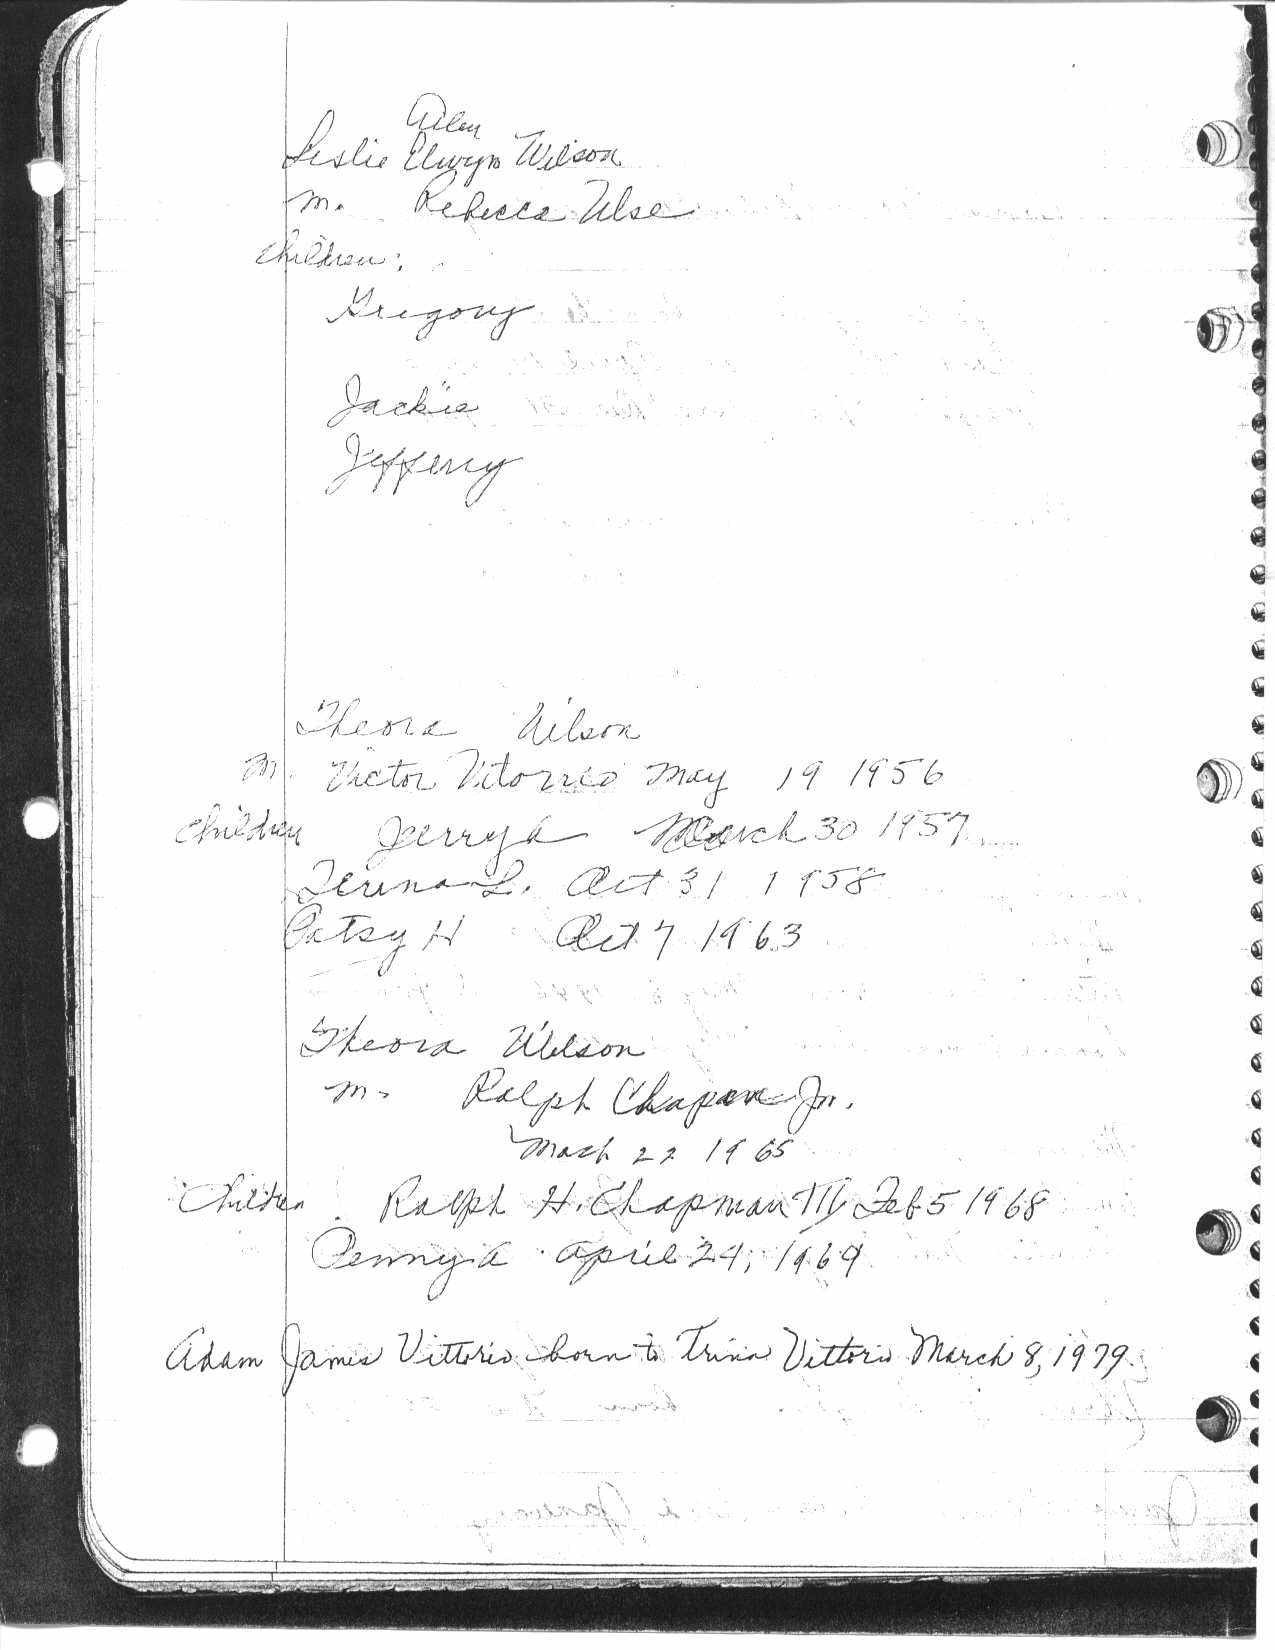 Allen
Leslie Elwyn Wilson
m. Rebecca Ulse
Children:
Gregory
Jackie
Jefferry
Theora Wilson
m. Victor Vitorrio May 19 1956
Children Jerry A March 30 1957
Terina L. Oct 31 1958
Patsy H Oct 7 1963
Theora Wilson
m. Ralph Chapman Jr.
Mach 22 1965
Children. Ralph H. Chapman III Feb 5 1968
Penny A April 24, 1969
Adam James Vittorio born to Trina Vittorio March 8, 1979